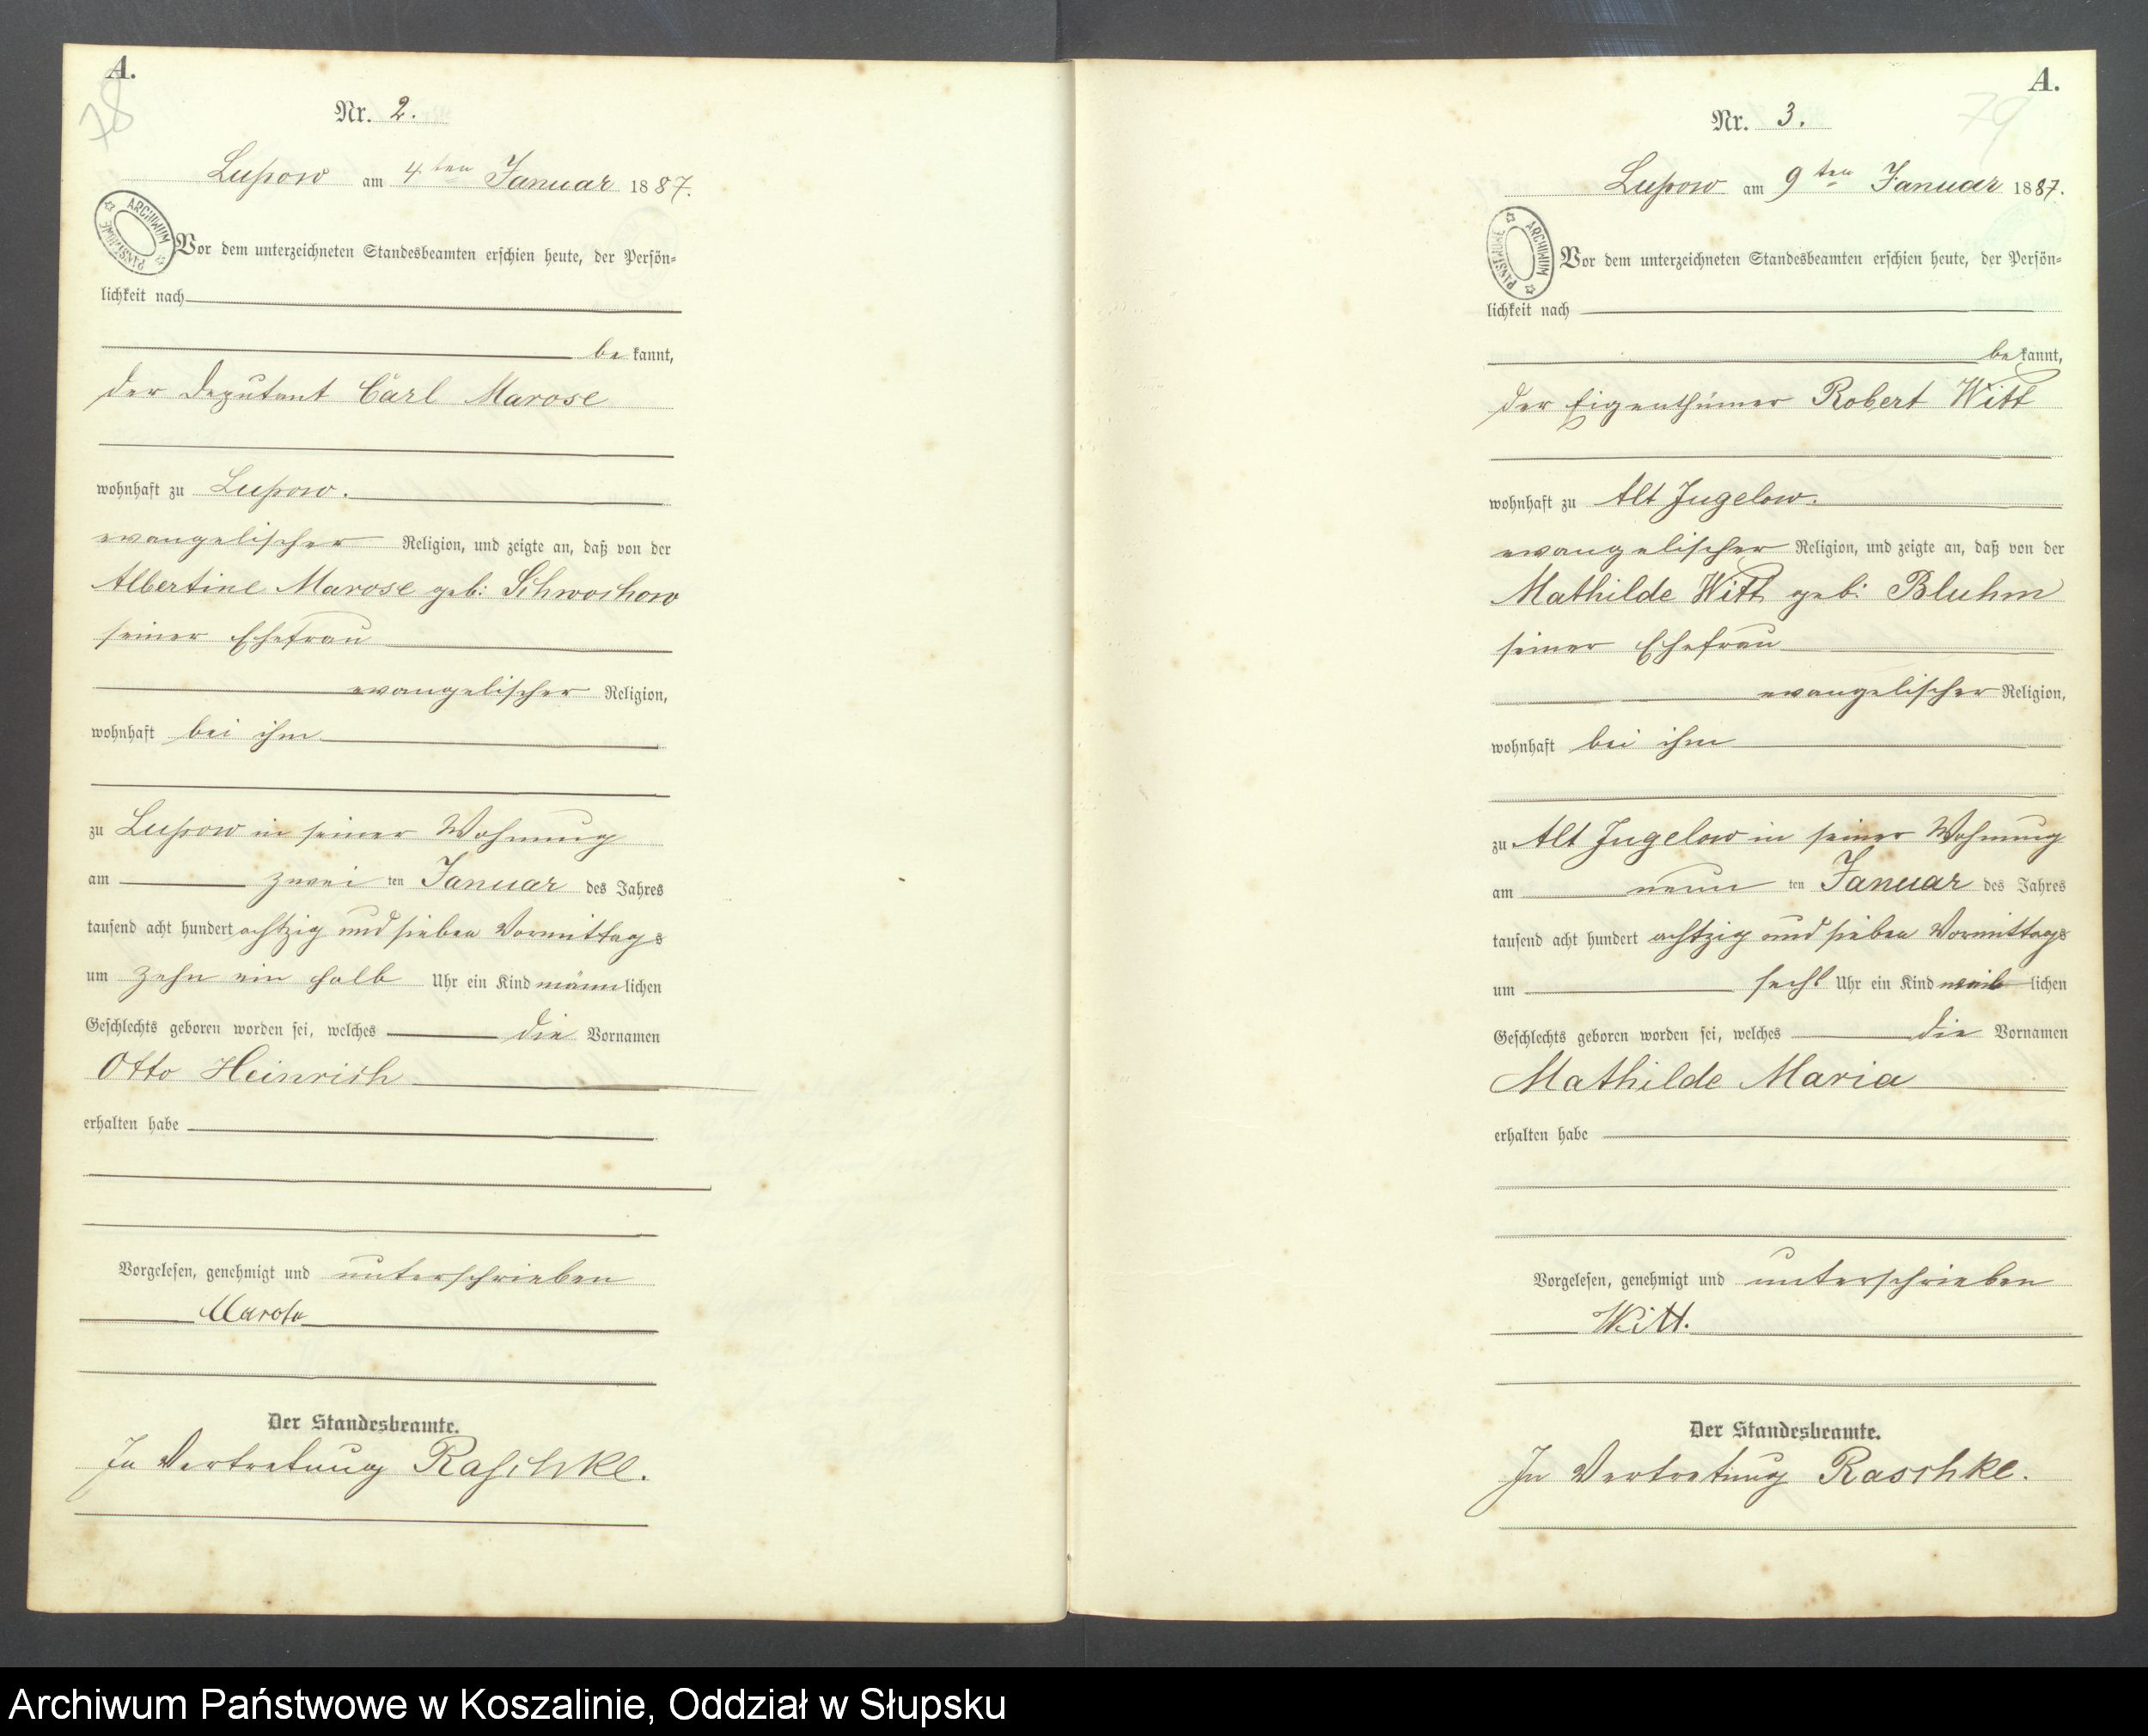 A.
78
Nr. 2.
Lupow am 4ten Januar 1887.
ARCHIWUM PAŃSTWOWE
Vor dem unterzeichneten Standesbeamten erschien heute, der Persön-
lichkeit nach
bekannt,
der Deputant Carl Marose
wohnhaft zu Lupow.
evangelischer Religion, und zeigte an, daß von der
Albertine Marose geb: Schwochow
seiner Ehefrau
evangelischer Religion,
wohnhaft bei ihm
zu Lupow in seiner Wohnung
am zwei ten Januar des Jahres
tausend acht hundert achtzig und sieben Vormittags
um zehn ein halb Uhr ein Kind männlichen
Geschlechts geboren worden sei, welches die Vornamen
Otto Heinrich
erhalten habe
Vorgelesen, genehmigt und unterschrieben
Marose
Der Standesbeamte.
In Vertretung Raschke.
A.
79
Nr. 3.
Lupow am 9ten Januar 1887.
ARCHIWUM PAŃSTWOWE
Vor dem unterzeichneten Standesbeamten erschien heute, der Persön-
lichkeit nach
bekannt,
der Eigenthümer Robert Witt
wohnhaft zu Alt Jugelow.
evangelischer Religion, und zeigte an, daß von der
Mathilde Witt geb: Bluhm
seiner Ehefrau
evangelischer Religion,
wohnhaft bei ihm
zu Alt Jugelow in seiner Wohnung
am neun ten Januar des Jahres
tausend acht hundert achtzig und sieben Vormittags
um sechs Uhr ein Kind weiblichen
Geschlechts geboren worden sei, welches die Vornamen
Mathilde Maria
erhalten habe
Vorgelesen, genehmigt und unterschrieben
Witt.
Der Standesbeamte.
In Vertretung Raschke.
Archiwum Państwowe w Koszalinie, Oddział w Słupsku